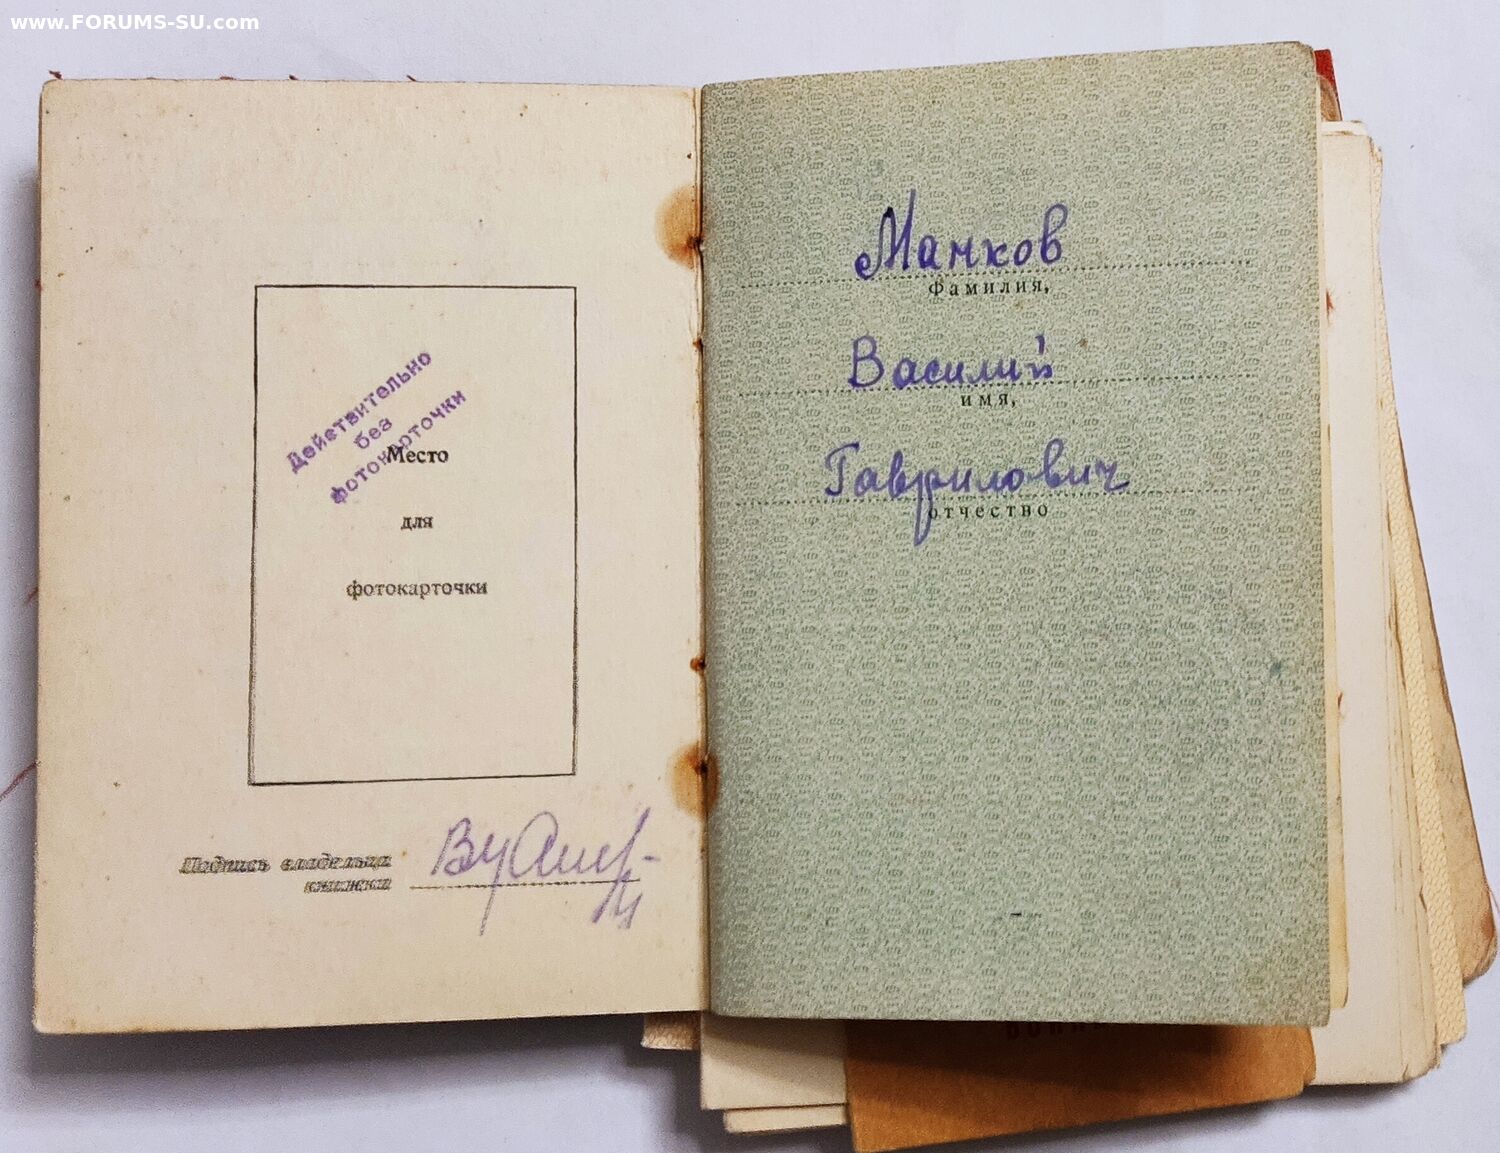 www.FORUMS-SU.com
Действительно
без
фотокарточки
Место
для
фотокарточки
Подпись владельца
книжки
Манков
фамилия,
Василий
имя,
Гаврилович
отчество